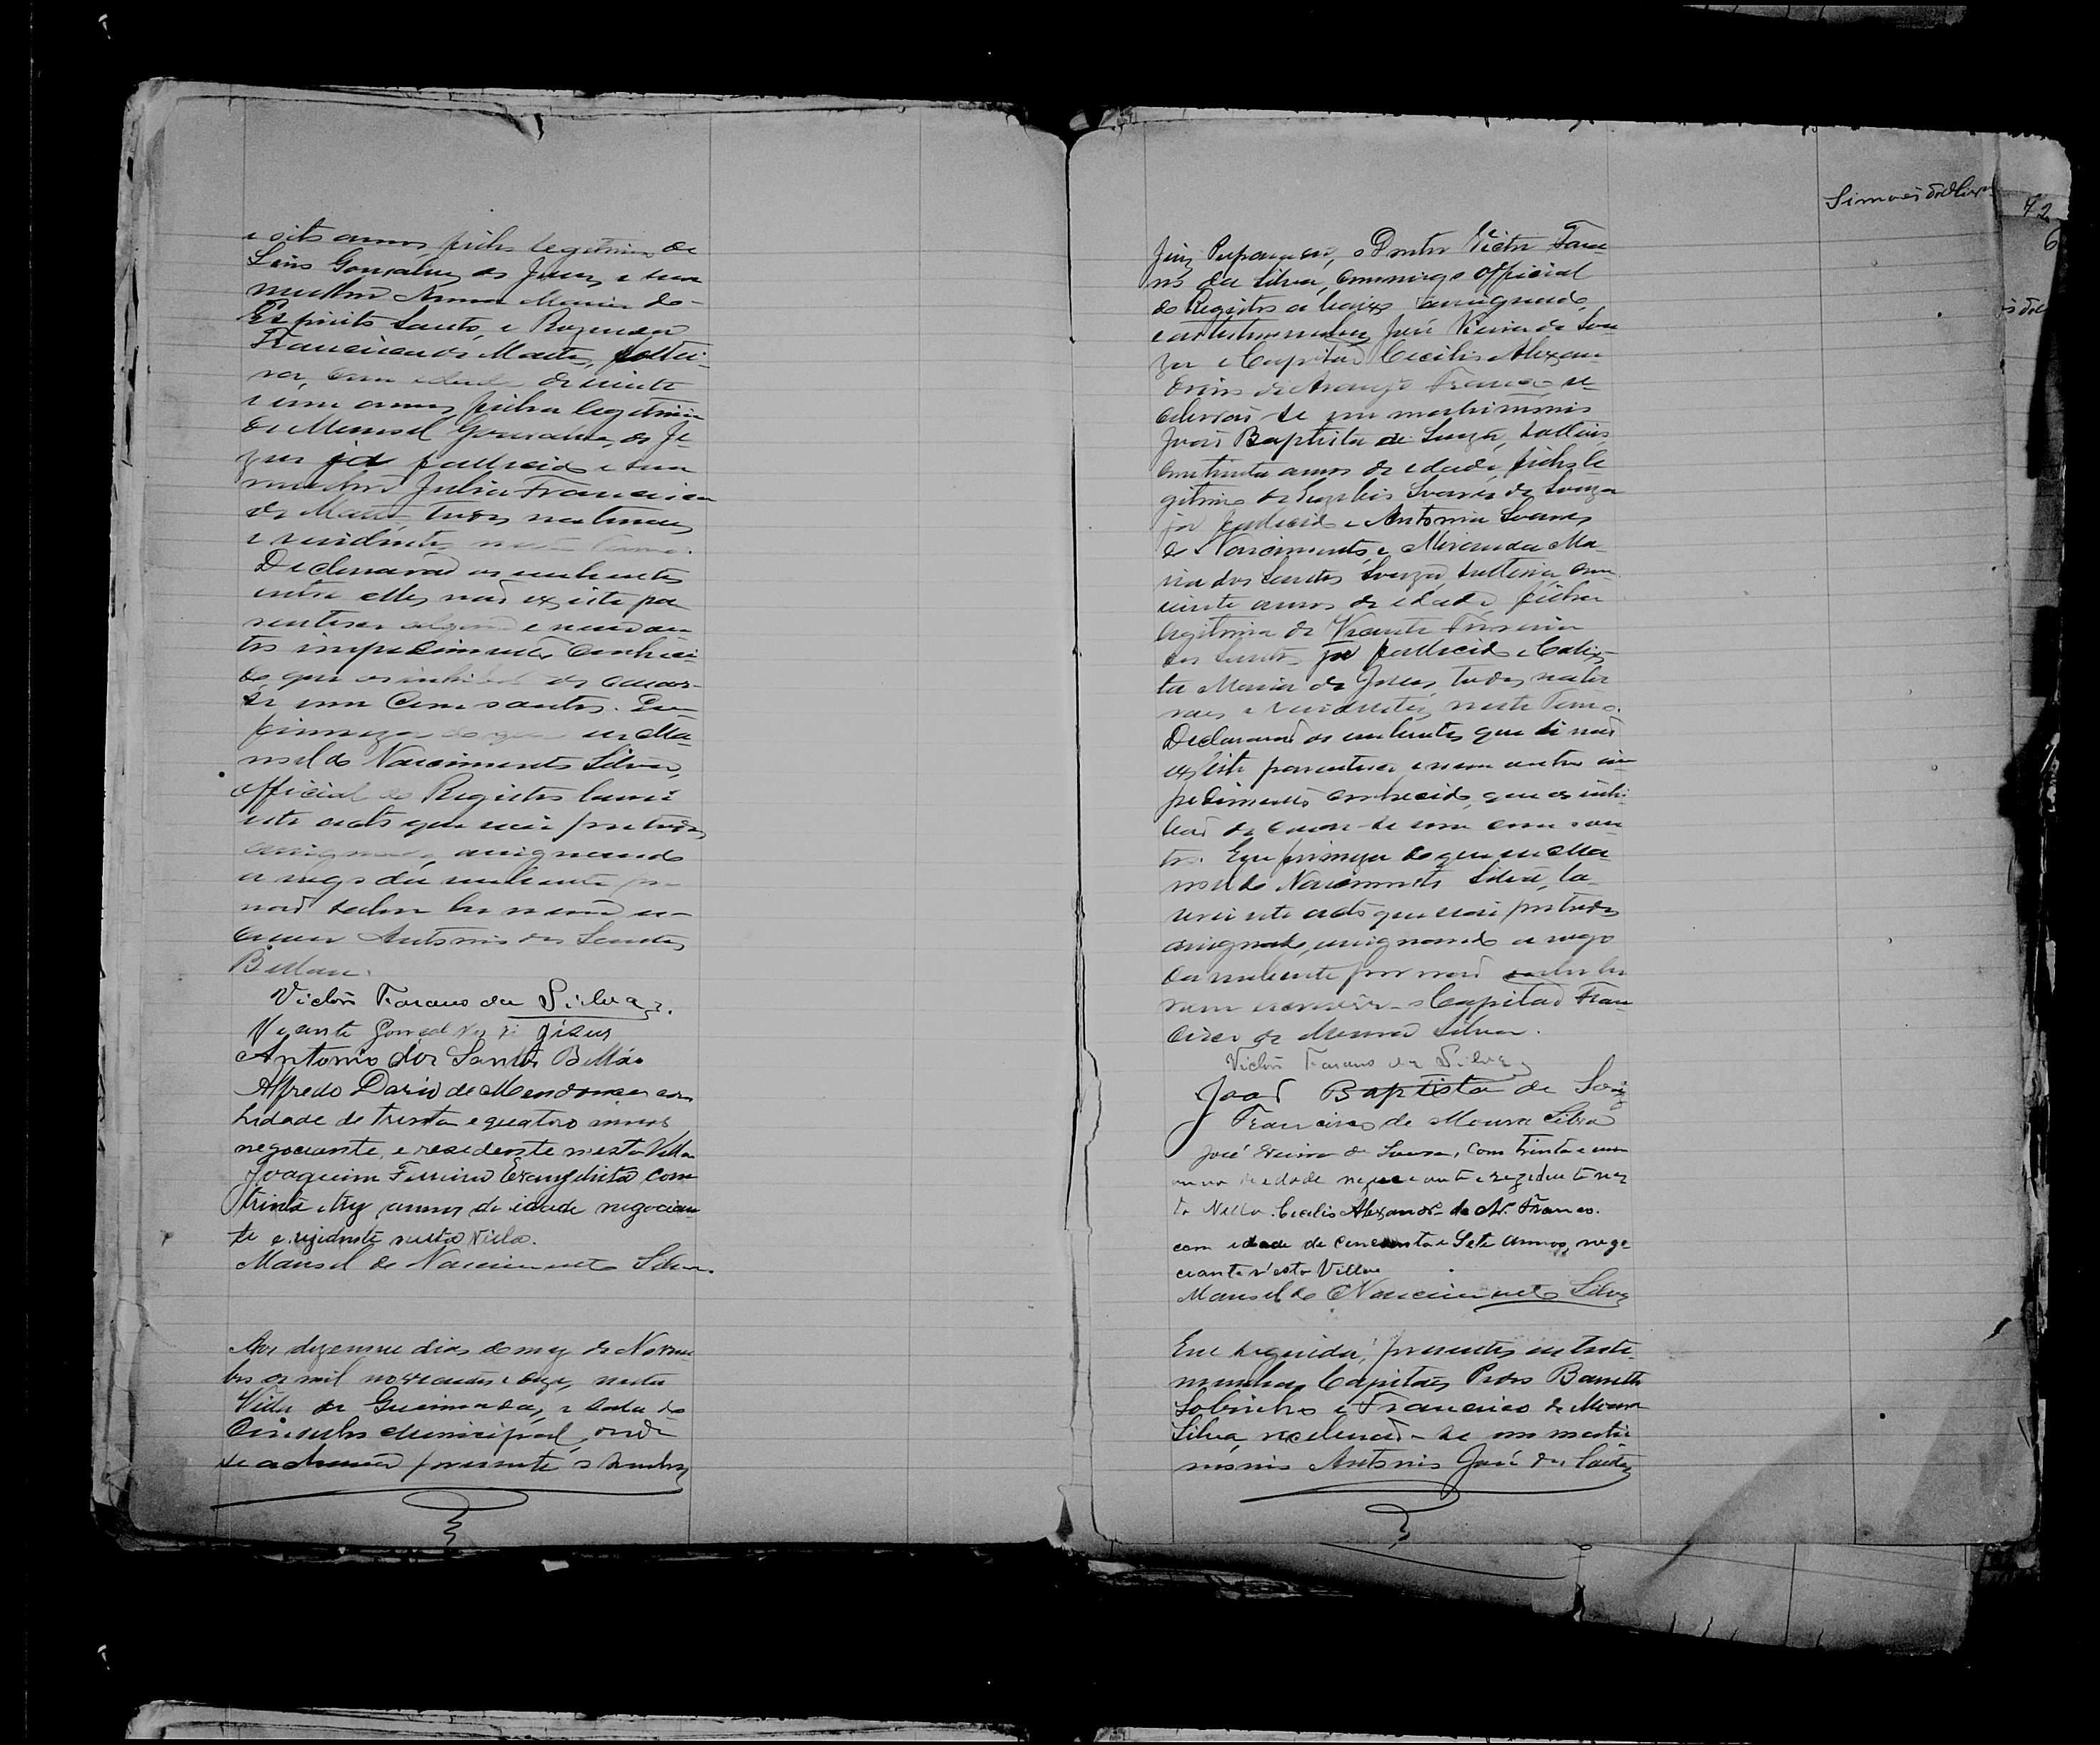 e oito annos, filho legitimo de
Luis Gonçalves de Jesus, e sua
mulher Anna Maria do
Espirito Santo, e Rozenda
Francisca de Mattos, soltei-
ra, com edade de vinte
e um annos, filha legitima
de Manoel Gonsalves de Je-
zus já fallecido e sua
mulher Julia Francisca
de Mattos, todos naturaes
e residentes neste Termo.
Declararão os nubentes
entre elles não existe pa-
rentesco algum e nem ou-
tro impedimento conheci-
do que os inhiba de casar-
se um com o outro. Em
firmeza do que eu Ma-
noel do Nascimento Silva,
official do Registro lavrei
este acto que vai por todos
assignado, assignando
a rogo da nubente por
não saber ler nem es-
crever Antonio dos Santos
Beltão.
Victor Faraus da Silva.
Vicente Gonsalves de Jesus
Antonio dos Santos Beltão
Alfredo Dario de Mendonça com
hidade de trinta e quatoro annos
negociante, e residente nesta Villa
Joaquim Ferreira Evangelista, com
trinta e trez annos de idade negocian-
te e rezidente nesta Villa.
Manoel do Nascimento Silva.
Aos dezenove dias do mez de Novem-
bro de mil novecentos e onze, nesta
Villa de Queimadas, e sala do
Conselho Municipal, onde
se achava presente o Senhor
Simões da Silva
42
6
Juiz Preparador, o Doutor Victor Farau-
s da Silva, commigo official
do Registro a baixo assignado,
e as testemunhas José Vieira de Sou-
za e Capitão Cecilio Alexan-
drino de Araujo Franco, re-
ceberão-se em mathrimonio
João Baptista de Souza, solteiro,
com trinta annos de edade, filho le-
gitimo de Euzebio Soares de Souza
já fallecido e Antonia Soares
do Nascimento, e Miranda Ma-
ria dos Santos Souza, solteira, com
vinte annos de edade, filha
legitima de Vicente Ferreira
dos Santos já fallecido e Calix-
ta Maria de Jesus, todos natu-
raes e residentes neste Termo.
Declararão os nubentes que si não
existe parentesco e nem outro im-
pedimento conhecido, que os inhi-
ba de casar-se um com o ou-
tro. Em firmeza do que eu Ma-
noel do Nascimento Silva, la-
vrei este acto que vai por todos
assignado, assignando a rogo
da nubente por não saber ler
nem escrever o Capitão Fran-
cisco de Moura Silva.
Victor Faraus da Silva
João Baptista de Souz
Francisco de Moura Silva
José Vieira de Souza, com trinta e um
annos de edade negociante e rezidente nes
ta Villa. Cecilio Alexandr.º de Ar.º Franco.
com edade de cincoenta e Sete annos, nego-
ciante n'esta Villa
Manoel do Nascimento Silva
Em seguida, presentes as teste-
munhas Capitães Pedro Barretto
Sobrinho e Francisco de Moura
Silva, receberão-se em matri-
monio Antonio José dos Santos